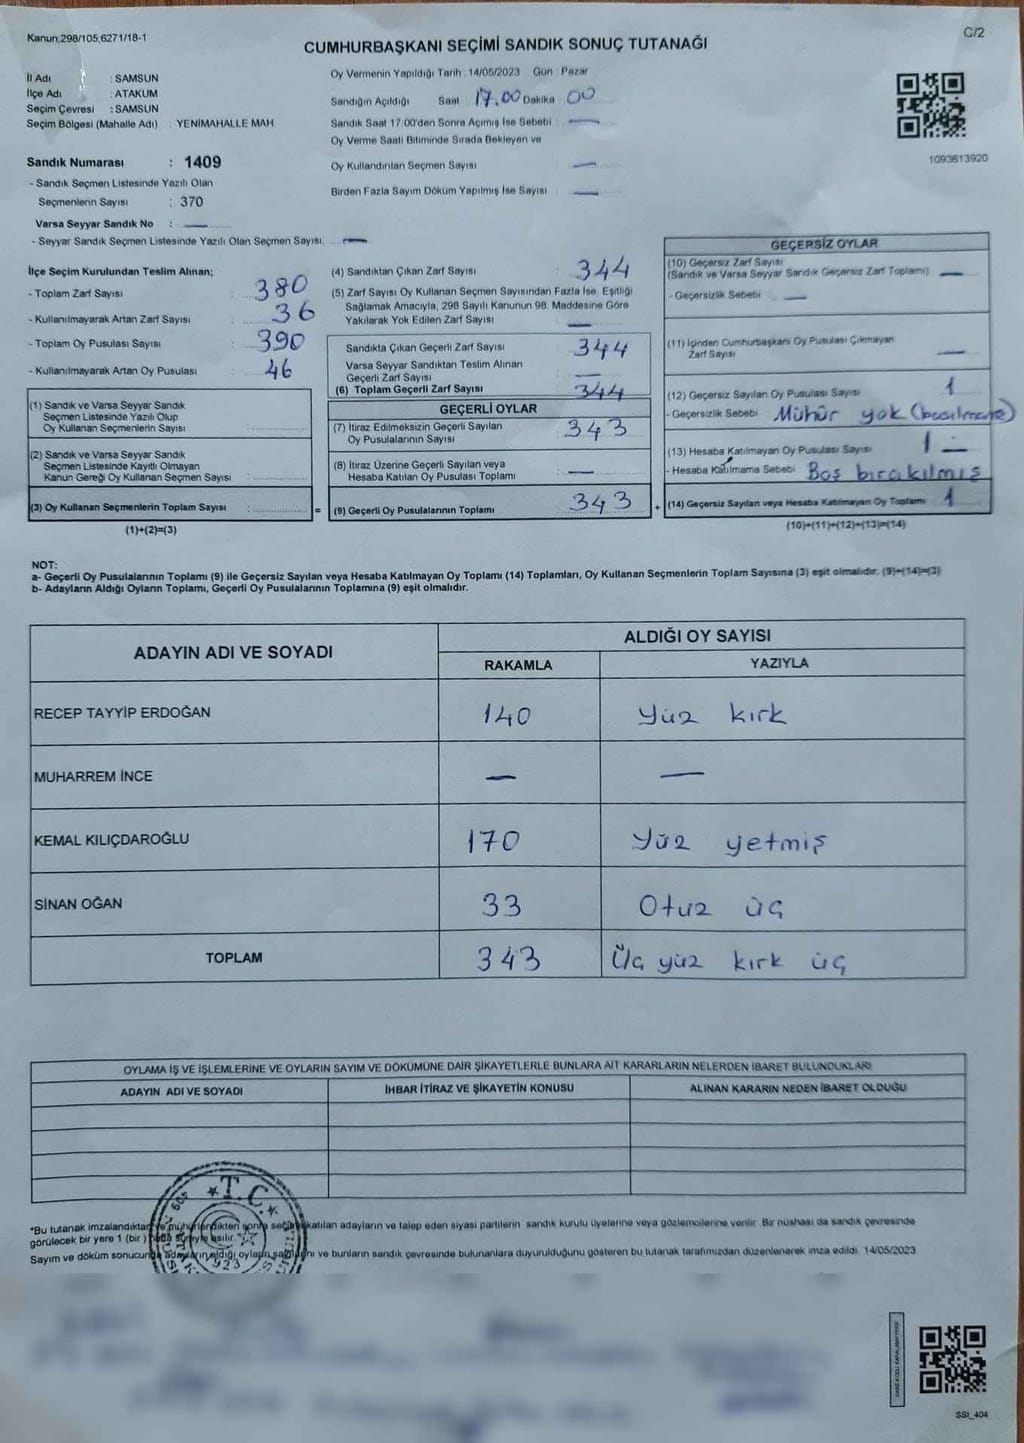 Kanun;298/105;6271/18-1
C/2
CUMHURBAŞKANI SEÇİMİ SANDIK SONUÇ TUTANAĞI
İl Adı : SAMSUN
İlçe Adı : ATAKUM
Seçim Çevresi : SAMSUN
Seçim Bölgesi (Mahalle Adı) : YENİMAHALLE MAH.
Sandık Numarası : 1409
- Sandık Seçmen Listesinde Yazılı Olan
Seçmenlerin Sayısı : 370
Varsa Seyyar Sandık No : —
- Seyyar Sandık Seçmen Listesinde Yazılı Olan Seçmen Sayısı: —
Oy Vermenin Yapıldığı Tarih : 14/05/2023 Gün : Pazar
Sandığın Açıldığı Saat : 17.00 Dakika : 00
Sandık Saat 17:00'den Sonra Açılmış İse Sebebi : —
Oy Verme Saati Bitiminde Sırada Bekleyen ve
Oy Kullandırılan Seçmen Sayısı —
Birden Fazla Sayım Döküm Yapılmış İse Sayısı —
1093613920
İlçe Seçim Kurulundan Teslim Alınan;
- Toplam Zarf Sayısı : 380
- Kullanılmayarak Artan Zarf Sayısı : 36
- Toplam Oy Pusulası Sayısı : 390
- Kullanılmayarak Artan Oy Pusulası : 46
(1) Sandık ve Varsa Seyyar Sandık
Seçmen Listesinde Yazılı Olup
Oy Kullanan Seçmenlerin Sayısı :
(2) Sandık ve Varsa Seyyar Sandık
Seçmen Listesinde Kayıtlı Olmayan
Kanun Gereği Oy Kullanan Seçmen Sayısı :
(3) Oy Kullanan Seçmenlerin Toplam Sayısı : =
(1)+(2)=(3)
(4) Sandıktan Çıkan Zarf Sayısı : 344
(5) Zarf Sayısı Oy Kullanan Seçmen Sayısından Fazla İse, Eşitliği
Sağlamak Amacıyla, 298 Sayılı Kanunun 98. Maddesine Göre
Yakılarak Yok Edilen Zarf Sayısı —
Sandıkta Çıkan Geçerli Zarf Sayısı : 344
Varsa Seyyar Sandıktan Teslim Alınan
Geçerli Zarf Sayısı : —
(6) Toplam Geçerli Zarf Sayısı : 344
GEÇERLİ OYLAR
(7) İtiraz Edilmeksizin Geçerli Sayılan
Oy Pusulalarının Sayısı : 343
(8) İtiraz Üzerine Geçerli Sayılan veya
Hesaba Katılan Oy Pusulası Toplamı : —
(9) Geçerli Oy Pusulalarının Toplamı : 343 +
GEÇERSİZ OYLAR
(10) Geçersiz Zarf Sayısı
(Sandık ve Varsa Seyyar Sandık Geçersiz Zarf Toplamı) : —
- Geçersizlik Sebebi : —
(11) İçinden Cumhurbaşkanı Oy Pusulası Çıkmayan
Zarf Sayısı —
(12) Geçersiz Sayılan Oy Pusulası Sayısı 1
- Geçersizlik Sebebi : Mühür yok (basılmamış)
(13) Hesaba Katılmayan Oy Pusulası Sayısı 1 —
- Hesaba Katılmama Sebebi : Boş bırakılmış
(14) Geçersiz Sayılan veya Hesaba Katılmayan Oy Toplamı 1
(10)+(11)+(12)+(13)=(14)
NOT:
a- Geçerli Oy Pusulalarının Toplamı (9) ile Geçersiz Sayılan veya Hesaba Katılmayan Oy Toplamı (14) Toplamları, Oy Kullanan Seçmenlerin Toplam Sayısına (3) eşit olmalıdır. (9)+(14)=(3)
b- Adayların Aldığı Oyların Toplamı, Geçerli Oy Pusulalarının Toplamına (9) eşit olmalıdır.
ADAYIN ADI VE SOYADI
ALDIĞI OY SAYISI
RAKAMLA YAZIYLA
RECEP TAYYİP ERDOĞAN 140 Yüz kırk
MUHARREM İNCE — —
KEMAL KILIÇDAROĞLU 170 Yüz yetmiş
SİNAN OĞAN 33 Otuz üç
TOPLAM 343 Üç yüz kırk üç
OYLAMA İŞ VE İŞLEMLERİNE VE OYLARIN SAYIM VE DÖKÜMÜNE DAİR ŞİKAYETLERLE BUNLARA AİT KARARLARIN NELERDEN İBARET BULUNDUKLARI
ADAYIN ADI VE SOYADI İHBAR İTİRAZ VE ŞİKAYETİN KONUSU ALINAN KARARIN NEDEN İBARET OLDUĞU
T.C.
*Bu tutanak imzalandıktan ve mühürlendikten sonra seçime katılan adayların ve talep eden siyasi partilerin sandık kurulu üyelerine veya gözlemcilerine verilir. Bir nüshası da sandık çevresinde
görülecek bir yere 1 (bir) hafta süreyle asılır.
Sayım ve döküm sonucunda adayların aldığı oyların sayılarını ve bunların sandık çevresinde bulunanlara duyurulduğunu gösteren bu tutanak tarafımızdan düzenlenerek imza edildi. 14/05/2023
923
SSI_404